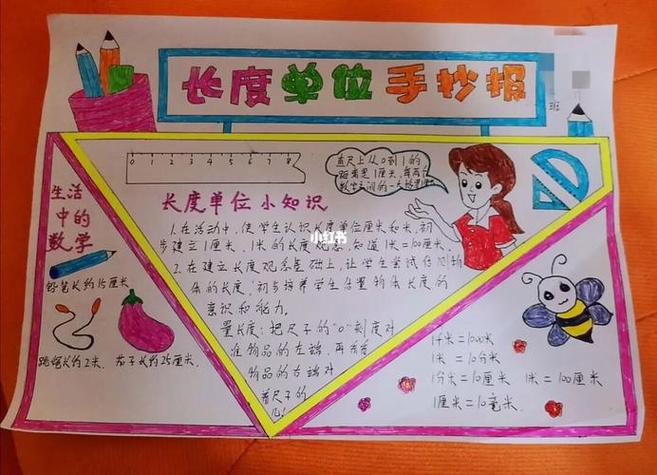 长度单位手抄报
班
0 1 2 3 4 5 6 7 8
直尺上从0到1的
距离是1厘米,
生活
中的
数学
铅笔长约15厘米
跳绳长约2米.
茄子长约25厘米.
长度单位小知识
1.在活动中,使学生认识长度单位厘米和米,初
步建立1厘米、1米的长度观念,知道1米=100厘米.
2.在建立长度观念基础上,让学生尝试估测物
体的长度,初步培养学生估量物体长度的
意识和能力.
量长度:把尺子的"0"刻度对
准物品的左端,再看看
物品的右端对
着尺子的
几!
小红书
1千米=1000米
1米=10分米
1分米=10厘米 1米=100厘米
1厘米=10毫米.